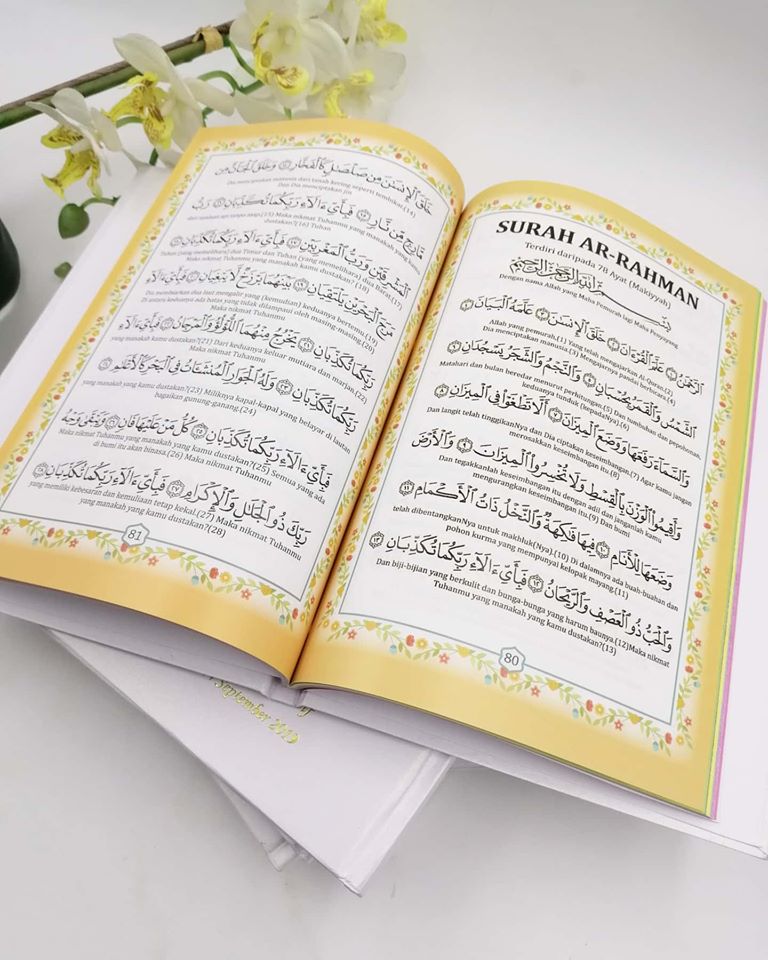 SURAH AR-RAHMAN
Terdiri daripada 78 Ayat (Makiyyah)
بِسْمِ ٱللَّهِ ٱلرَّحْمَٰنِ ٱلرَّحِيمِ
Dengan nama Allah yang Maha Pemurah lagi Maha Penyayang
ٱلرَّحْمَٰنُ ١ عَلَّمَ ٱلْقُرْءَانَ ٢ خَلَقَ ٱلْإِنسَٰنَ ٣ عَلَّمَهُ ٱلْبَيَانَ ٤
Allah yang pemurah.(1) Yang telah mengajarkan Al-Quran.(2)
Dia menciptakan manusia.(3) Mengajarnya pandai berbicara.(4)
ٱلشَّمْسُ وَٱلْقَمَرُ بِحُسْبَانٍ ٥ وَٱلنَّجْمُ وَٱلشَّجَرُ يَسْجُدَانِ ٦
Matahari dan bulan beredar menurut perhitungan.(5) Dan tumbuhan dan pepohonan,
keduanya tunduk (kepadaNya).(6)
وَٱلسَّمَآءَ رَفَعَهَا وَوَضَعَ ٱلْمِيزَانَ ٧ أَلَّا تَطْغَوْا۟ فِى ٱلْمِيزَانِ ٨
Dan langit telah tinggikanNya dan Dia ciptakan keseimbangan.(7) Agar kamu jangan
merosakkan keseimbangan itu.(8)
وَأَقِيمُوا۟ ٱلْوَزْنَ بِٱلْقِسْطِ وَلَا تُخْسِرُوا۟ ٱلْمِيزَانَ ٩ وَٱلْأَرْضَ
Dan tegakkanlah keseimbangan itu dengan adil dan janganlah kamu
mengurangkan keseimbangan itu.(9) Dan bumi
وَضَعَهَا لِلْأَنَامِ ١٠ فِيهَا فَٰكِهَةٌ وَٱلنَّخْلُ ذَاتُ ٱلْأَكْمَامِ ١١
telah dibentangkanNya untuk makhluk(Nya).(10) Di dalamnya ada buah-buahan dan
pohon kurma yang mempunyai kelopak mayang.(11)
وَٱلْحَبُّ ذُو ٱلْعَصْفِ وَٱلرَّيْحَانُ ١٢ فَبِأَىِّ ءَالَآءِ رَبِّكُمَا تُكَذِّبَانِ ١٣
Dan biji-bijian yang berkulit dan bunga-bunga yang harum baunya.(12)Maka nikmat
Tuhanmu yang manakah yang kamu dustakan?(13)
80
خَلَقَ ٱلْإِنسَٰنَ مِن صَلْصَٰلٍ كَٱلْفَخَّارِ ١٤ وَخَلَقَ ٱلْجَآنَّ مِن
Dia menciptakan manusia dari tanah kering seperti tembikar.(14)
Dan Dia menciptakan jin
مَّارِجٍ مِّن نَّارٍ ١٥ فَبِأَىِّ ءَالَآءِ رَبِّكُمَا تُكَذِّبَانِ ١٦ رَبُّ
dari nyalaan api tanpa asap.(15) Maka nikmat Tuhanmu yang manakah yang kamu
dustakan?(16) Tuhan
ٱلْمَشْرِقَيْنِ وَرَبُّ ٱلْمَغْرِبَيْنِ ١٧ فَبِأَىِّ ءَالَآءِ رَبِّكُمَا تُكَذِّبَانِ ١٨
(yang memelihara) dua Timur dan Tuhan (yang memelihara) dua Barat.(17)
Maka nikmat Tuhanmu yang manakah yang kamu dustakan? (18)
مَرَجَ ٱلْبَحْرَيْنِ يَلْتَقِيَانِ ١٩ بَيْنَهُمَا بَرْزَخٌ لَّا يَبْغِيَانِ ٢٠ فَبِأَىِّ ءَالَآءِ
Dia membiarkan dua laut mengalir yang (kemudian) keduanya bertemu.(19)
Di antara keduanya ada batas yang tidak dilampaui oleh masing-masing.(20)
Maka nikmat Tuhanmu
رَبِّكُمَا تُكَذِّبَانِ ٢١ يَخْرُجُ مِنْهُمَا ٱللُّؤْلُؤُ وَٱلْمَرْجَانُ ٢٢ فَبِأَىِّ ءَالَآءِ
yang manakah yang kamu dustakan?(21) Dari keduanya keluar mutiara dan marjan.(22)
Maka nikmat Tuhanmu
رَبِّكُمَا تُكَذِّبَانِ ٢٣ وَلَهُ ٱلْجَوَارِ ٱلْمُنشَـَٔاتُ فِى ٱلْبَحْرِ كَٱلْأَعْلَٰمِ ٢٤
yang manakah yang kamu dustakan?(23) Miliknya kapal-kapal yang belayar di lautan
bagaikan gunung-ganang.(24)
فَبِأَىِّ ءَالَآءِ رَبِّكُمَا تُكَذِّبَانِ ٢٥ كُلُّ مَنْ عَلَيْهَا فَانٍ ٢٦ وَيَبْقَىٰ وَجْهُ
Maka nikmat Tuhanmu yang manakah yang kamu dustakan?(25) Semua yang ada
di bumi itu akan binasa.(26) Maka nikmat Tuhanmu
رَبِّكَ ذُو ٱلْجَلَٰلِ وَٱلْإِكْرَامِ ٢٧ فَبِأَىِّ ءَالَآءِ رَبِّكُمَا تُكَذِّبَانِ ٢٨
yang memiliki kebesaran dan kemuliaan tetap kekal.(27) Maka nikmat Tuhanmu
yang manakah yang kamu dustakan?(28)
81
September 2019